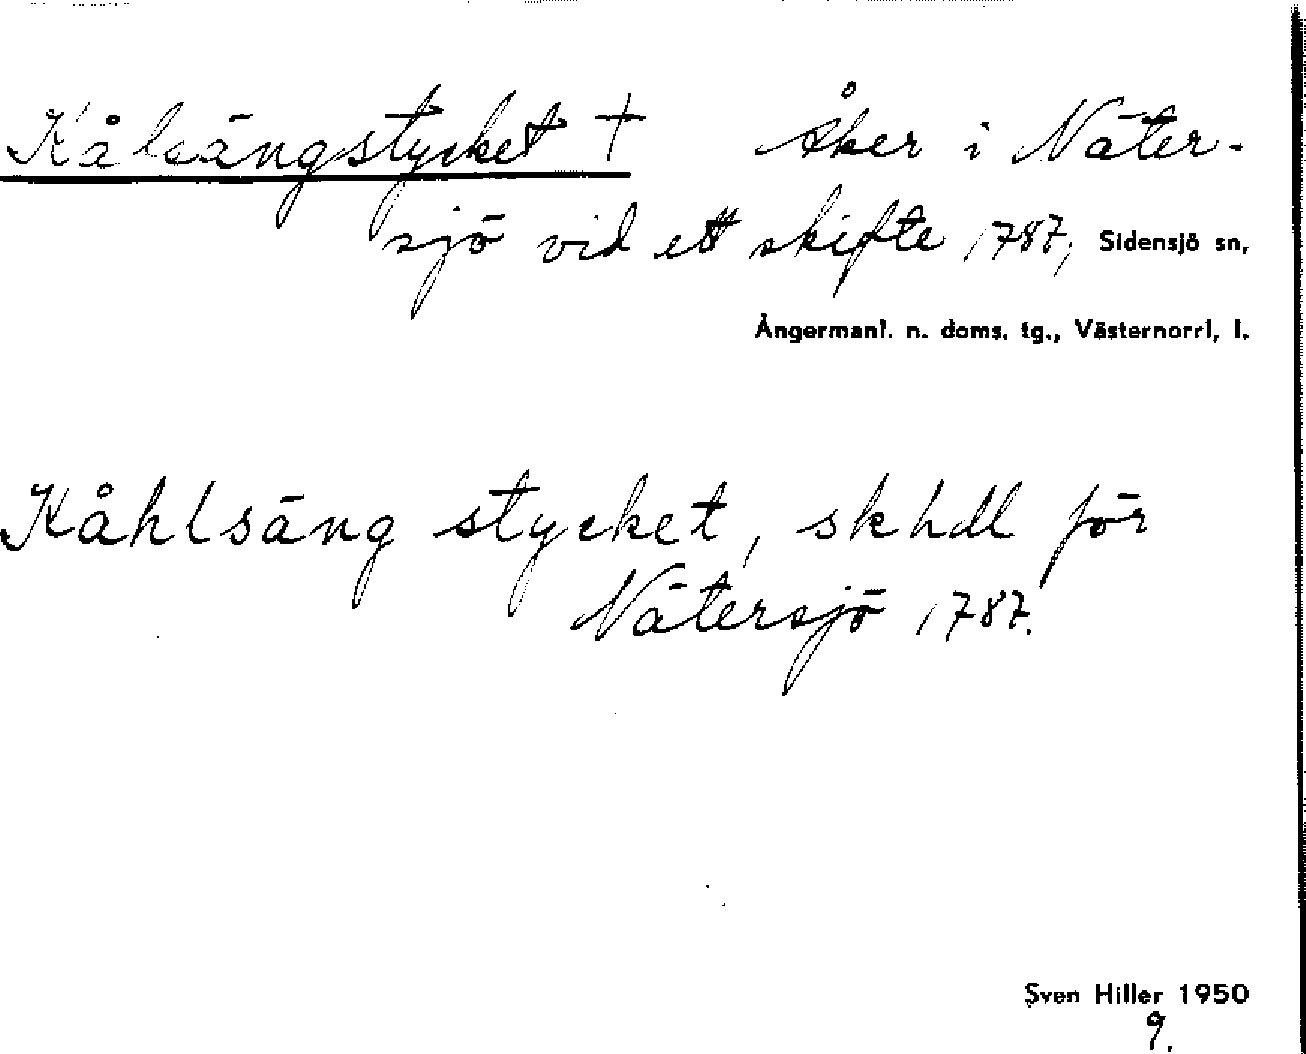 Kålsängstycket † Åker i Näter-
sjö vid ett skifte 1787, Sidensjö sn,
Ångermanl. n. doms. tg., Västernorrl, l.
Kåhlsäng stycket, skhdl för
Nätersjö 1787.
Sven Hiller 1950
9.